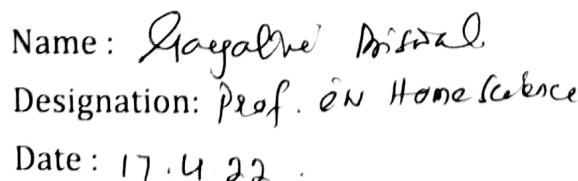 Name : Gayatri Biswal
Designation: Prof. in Home Science
Date : 17.4.22.